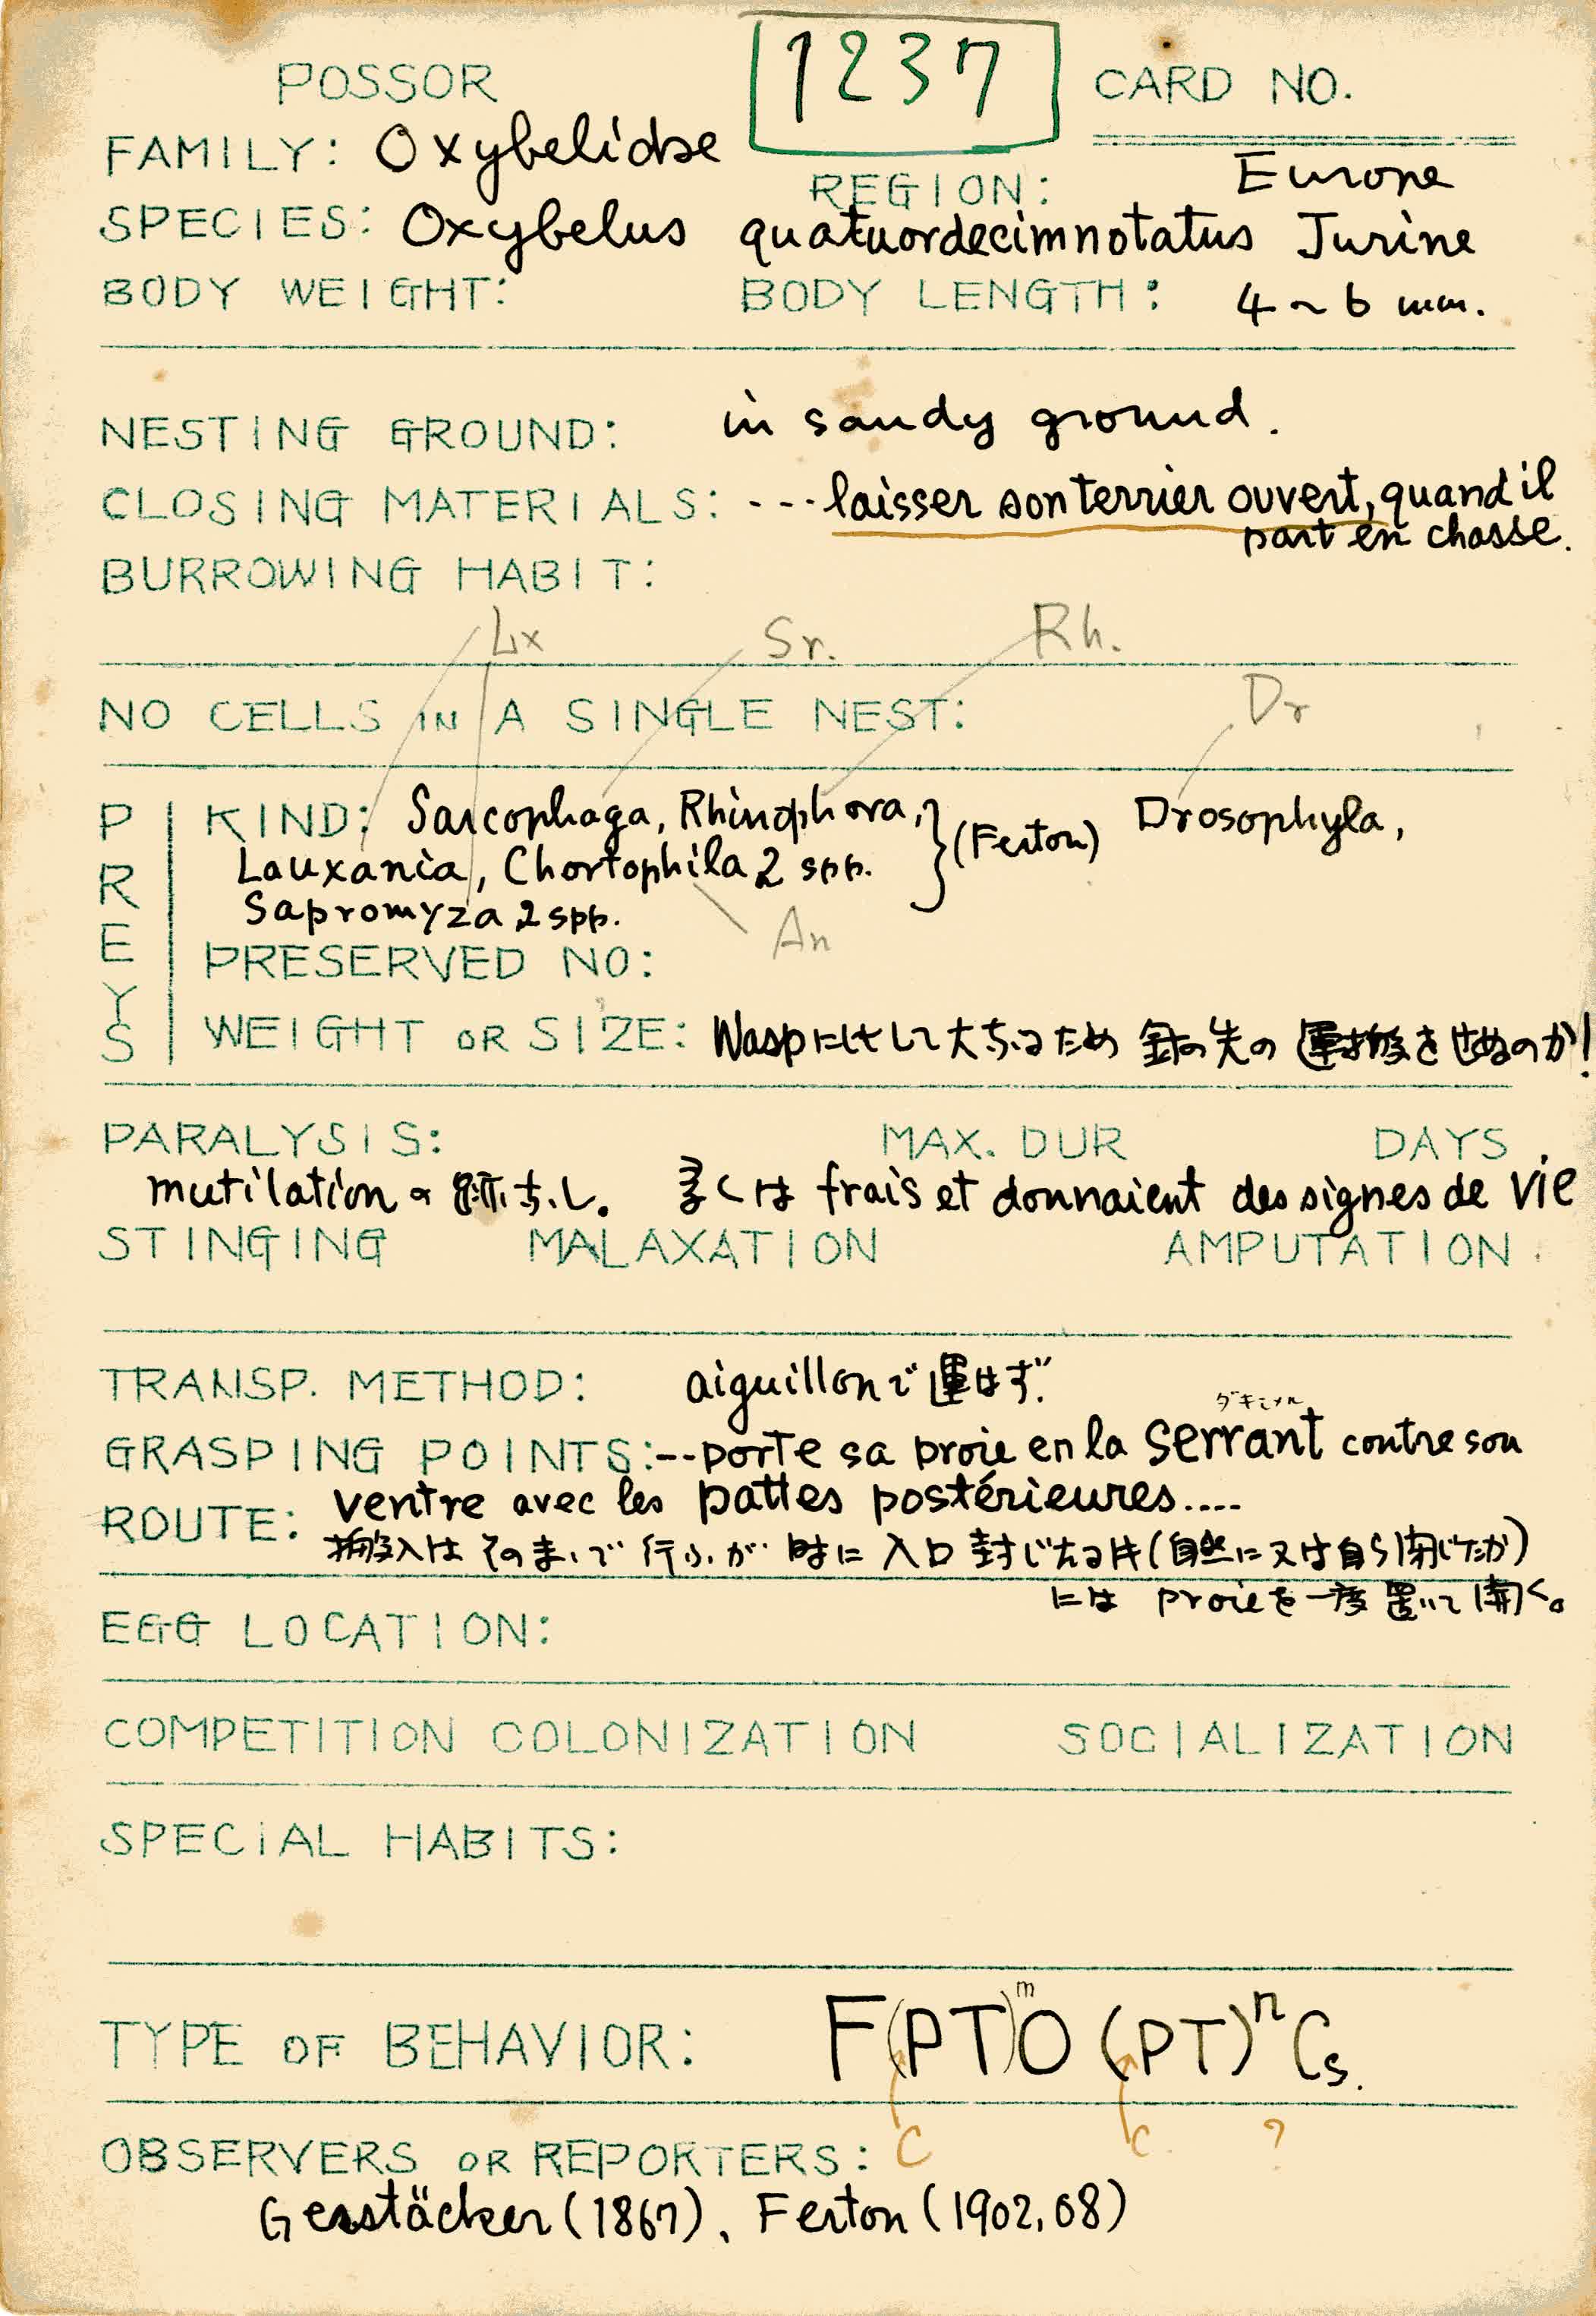 POSSOR 1237 CARD NO.
FAMILY: Oxybelidae
REGION: Europe
SPECIES: Oxybelus quatuordecimnotatus Jurine
BODY WEIGHT: BODY LENGTH: 4~6 mm.
NESTING GROUND: in sandy ground.
CLOSING MATERIALS: ---laisser son terrier ouvert, quand il
part en chasse.
BURROWING HABIT:
Lx Sr. Rh.
NO CELLS IN A SINGLE NEST: Dr
PREYS
KIND: Sarcophaga, Rhinophora, (Ferton) Drosophyla,
Lauxania, Chortophila 2 spp.
Sapromyza 2 spp.
An
PRESERVED NO:
WEIGHT OR SIZE: Waspに比して大なるため 針の先の運搬をせぬのか!
PARALYSIS: MAX. DUR DAYS
mutilationの跡なし。 多くは frais et donnaient des signes de vie
STINGING MALAXATION AMPUTATION
TRANSP. METHOD: aiguillonで運ばず.
ダキシメル
GRASPING POINTS: --porte sa proie en la serrant contre son
ventre avec les pattes postérieures....
ROUTE: 搬入はそのまゝで行ふが 時に入口封じたる時(自然に又は自ら閉じたか)
には proieを一度置いて開く。
EGG LOCATION:
COMPETITION COLONIZATION SOCIALIZATION
SPECIAL HABITS:
TYPE OF BEHAVIOR: F(PT)ᵐO (PT)ⁿCs.
C C. ?
OBSERVERS OR REPORTERS:
Gerstäcker (1867), Ferton (1902, 08)